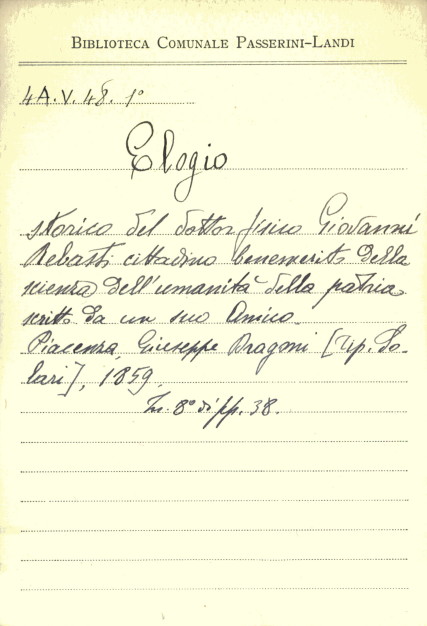 BIBLIOTECA COMUNALE PASSERINI-LANDI
4A.V.48. 1°
Elogio
storico del dottor fisico Giovanni
Rebasti cittadino benemerito della
scienza dell'umanità della patria
scritto da un suo Amico.
Piacenza, Giuseppe Dragoni [Tip. So-
lari], 1859.
In. 8° di pp. 38.